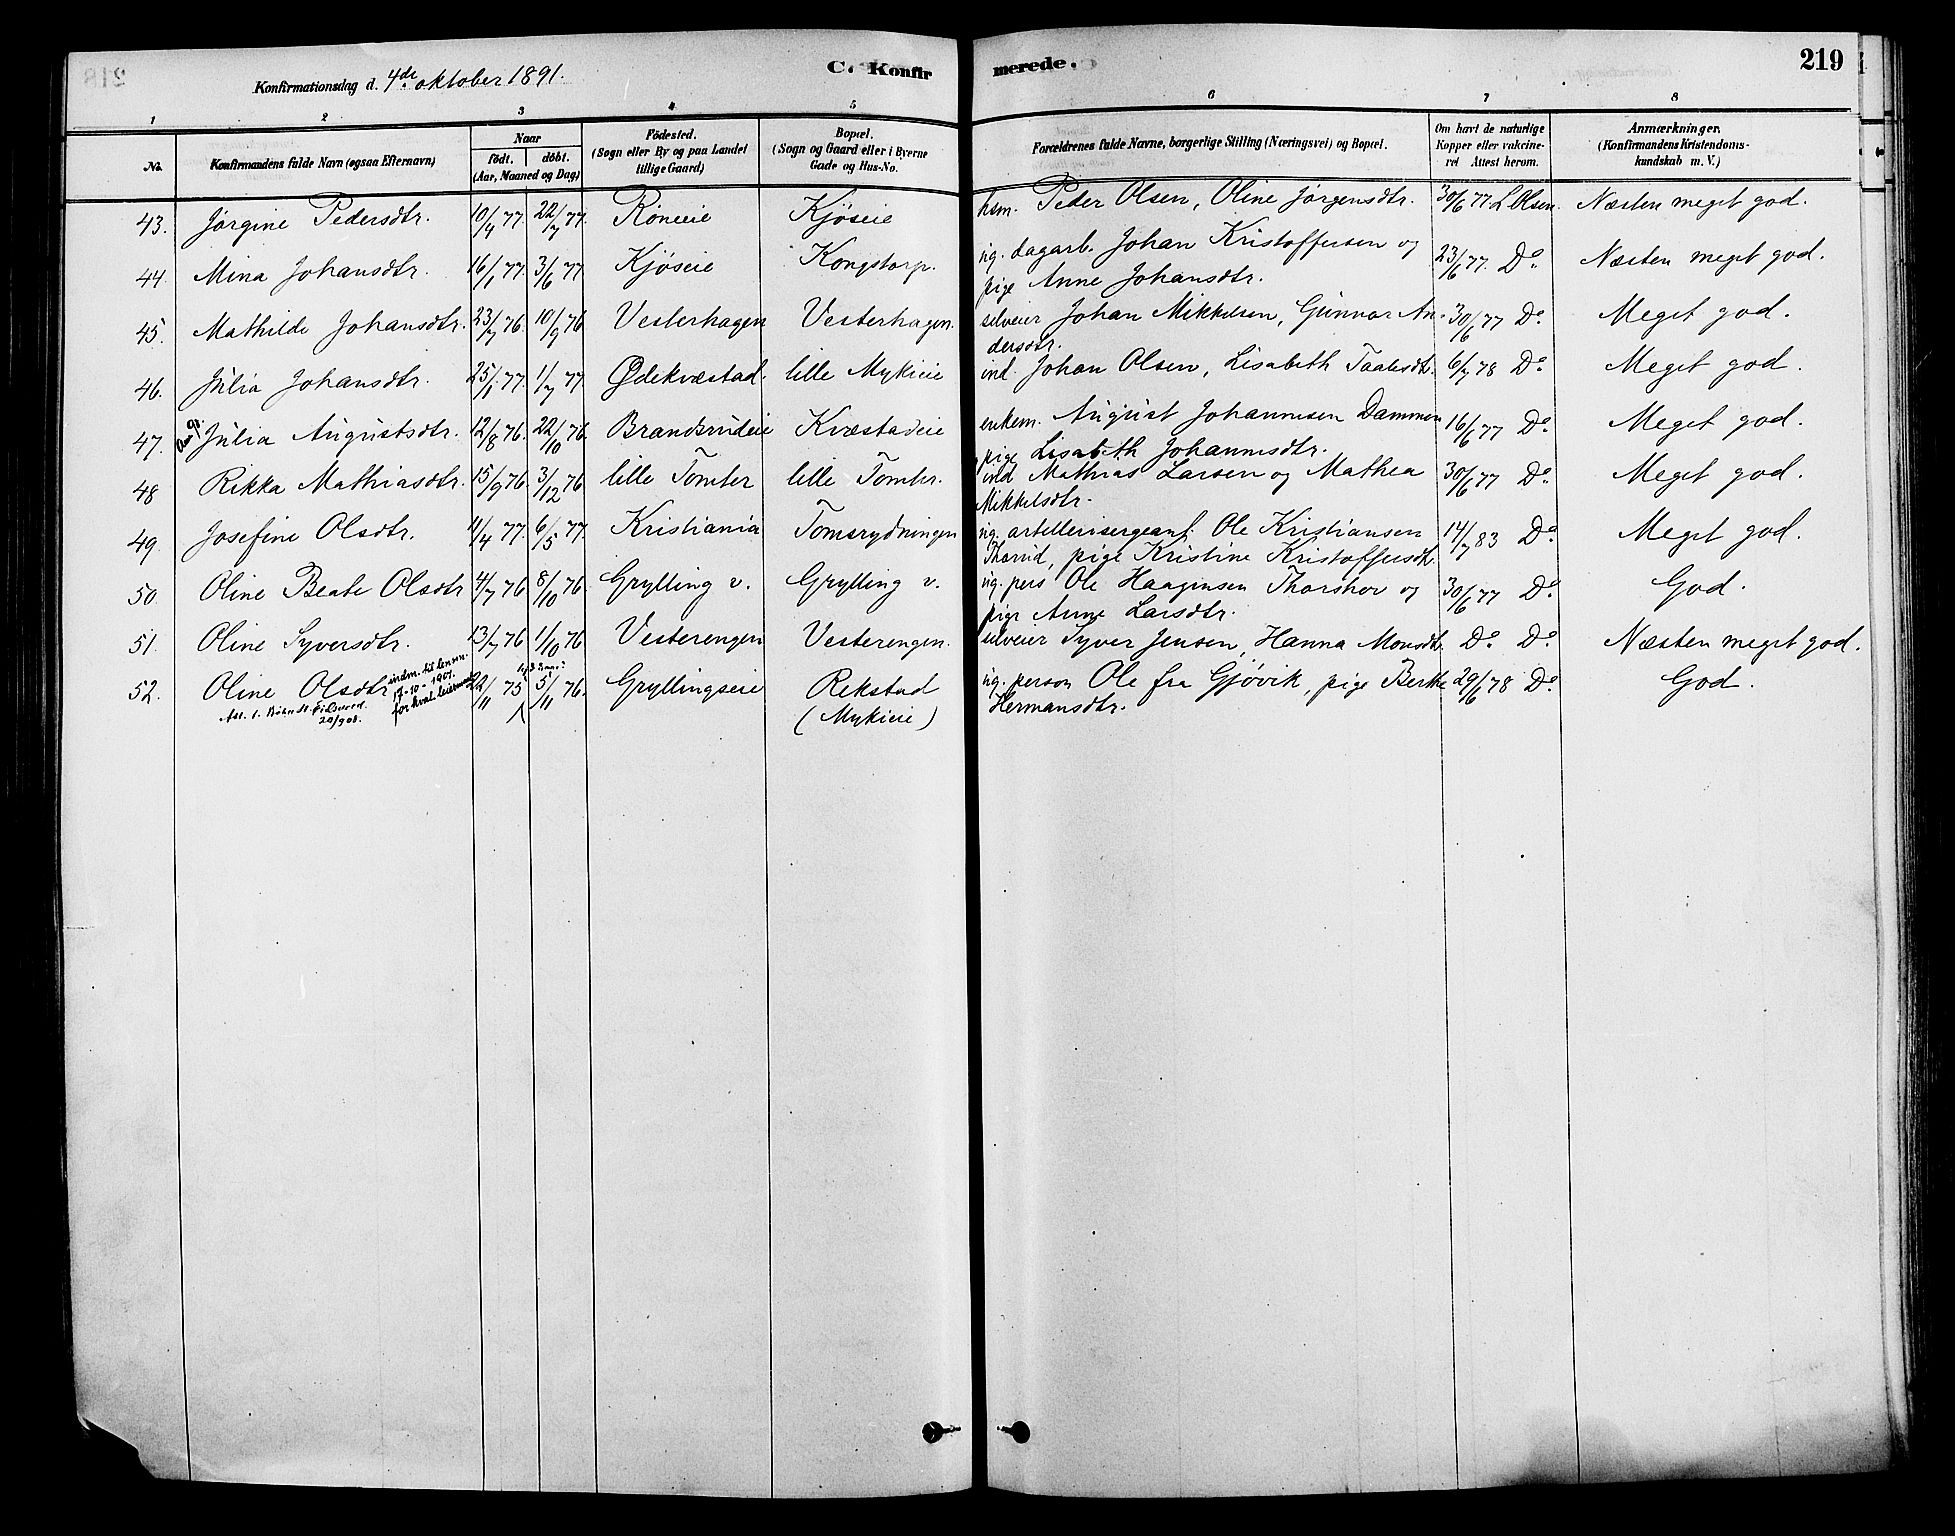 Konfirmationsdag d. 4de oktober 1891.
C. Konfirmerede.
219
1 2 3 4 5 6 7 8
No. Konfirmandens fulde Navn (ogsaa Efternavn)
Naar
født. døbt.
(Aar, Maaned og Dag)
Fødested.
(Sogn eller By og paa Landet
tillige Gaard)
Bopæl.
(Sogn og Gaard eller i Byerne
Gade og Hus-No.
Forældrenes fulde Navne, borgerlige Stilling (Næringsvei) og Bopæl.
Om havt de naturlige
Kopper eller vakcine-
ret Attest herom.
Anmærkninger.
(Konfirmandens Kristendoms-
kundskab m. V.)
43. Jørgine Pedersdtr. 10/4 77. 22/7 77. Røneeie Kjøseie hsm. Peder Olsen, Oline Jørgensdtr. 30/6 77 L Olsen. Næsten meget god.
44. Mina Johansdtr. 16/1 77. 3/6 77 Kjøseie Kongstorp. ug. dagarb. Johan Kristoffersen og
pige Anne Johansdtr. 23/6 77. Do. Næsten meget god.
45. Mathilde Johansdtr. 23/7 76. 10/9 76 Vesterhagen Vesterhagen. selveier Johan Mikkelsen, Gunnor An-
dersdtr. 30/6 77 Do. Meget god.
46. Julia Johansdtr. 25/1 77. 1/7 77 Ødekvæstad. lille Mykieie ind. Johan Olsen, Lisabeth Taalesdtr. 6/7 78 Do. Meget god.
47. Julia Augustsdtr. 12/8 76. 22/10 76. Brandsrudeie Kvæstadeie enkem. August Johannesen Dammen
pige Lisabeth Johannesdtr. 16/6 77 Do. Meget god.
48 Rikka Mathiasdtr. 15/9 76. 3/12 76 lille Tomter lille Tomter. ind Mathias Larsen og Mathea
Mikkelsdtr. 30/6 77 Do. Meget god.
49. Josefine Olsdtr. 11/4 77. 6/5 77. Kristiania Tomsrydningen ug. artillerisergeant Ole Kristiansen
Thorrid, pige Kristine Kristoffersdtr. 14/7 83 Do. Meget god.
50. Oline Beate Olsdtr 4/7 76 8/10 76 Grylling v. Grylling v. ug. pers Ole Haagensen Thorshov og
pige Anne Larsdtr. 30/6 77 Do. God.
51. Oline Syversdtr. 13/7 76 1/10 76 Vesterengen Vesterengen. selveier Syver Jensen, Hanna Monsdtr. Do. Do. Næsten meget god.
52. Oline Olsdtr 22/11 75 5/11 76. Gryllingseie Rekstad
(Mykieie) ug. person Ole fra Gjøvik, pige Berthe
Hermansdtr. 29/6 78 Do. God.
17-10-1907.
20/9 08.